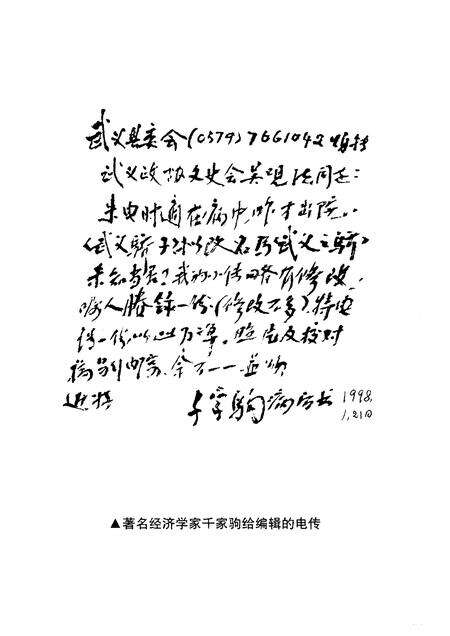 武义县委会(0579)7661042烦转
武义政协文史会吴觉法同志:
来电时适在病中,昨才出院。
《武义骄子》拟改名为《武义之骄》
未知当否?我的小传略有修改,
嘱人腾录一份(修改不多),特电
传一份,以此为准。照片及校对
稿另邮寄,余不一一 并颂
近祺 千家驹病后书 1998.
1.21日
▲著名经济学家千家驹给编辑的电传